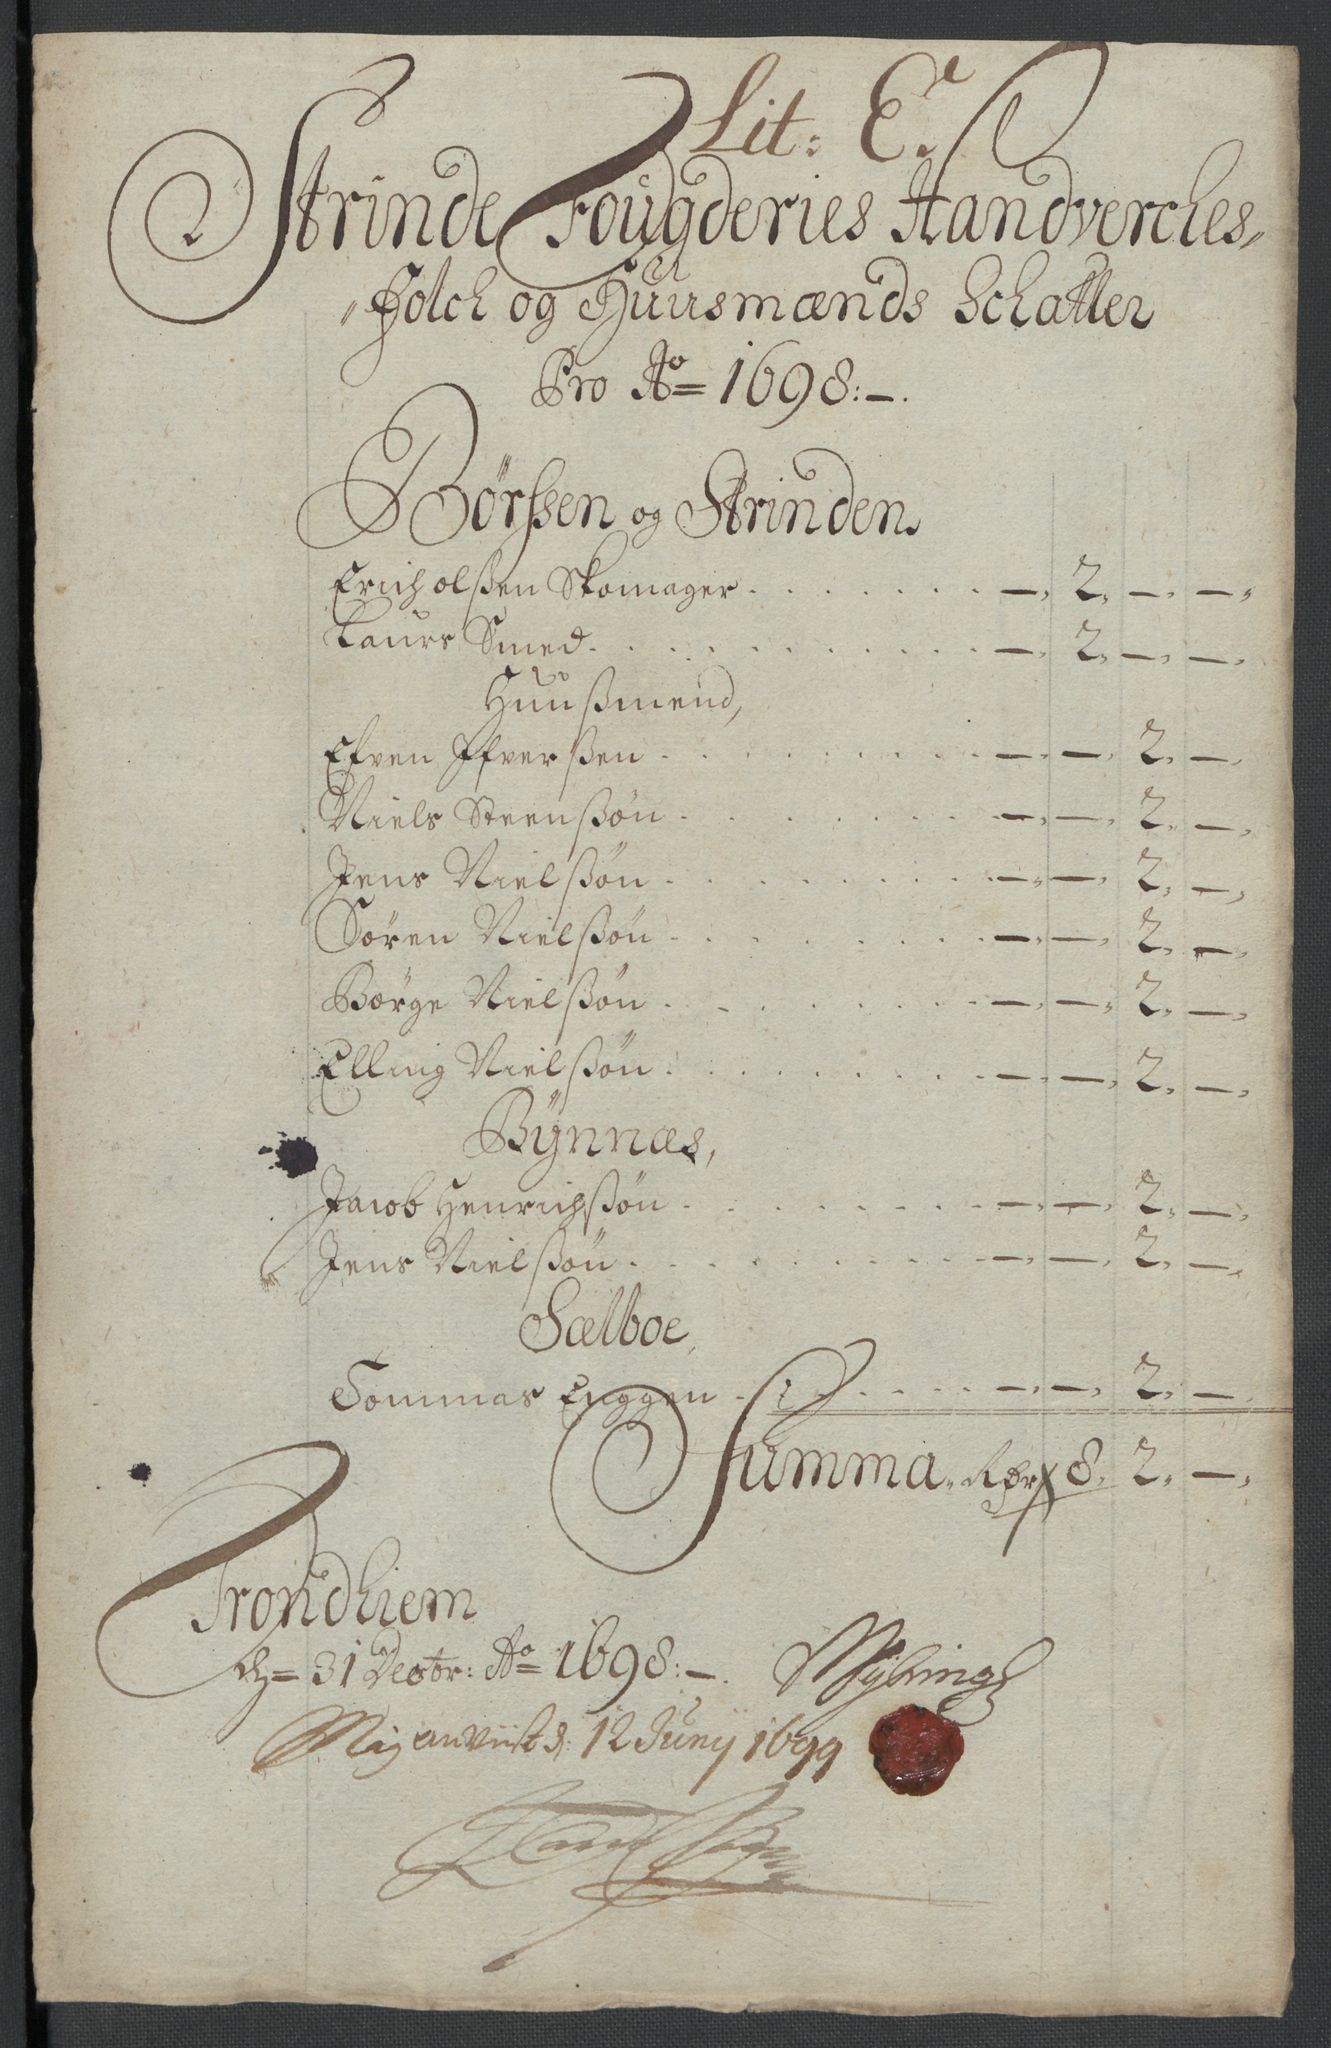 Lit: E.
Strinde Fougderies Handverches„
„Folch og Huusmænds Schatter
Pro Ao= 1698:—.
Børssen og Strinden.
Erich olßen Skomager . . . . . . . —, 2, —, —,
Laurs Smed . . . . . . . —, 2, —, —,
Huußmend,
Efven Ifverßen . . . . . . . —, —, 2, —,
Niels Steensßøn . . . . . . . —, —, 2, —,
Jens Nielßøn . . . . . . . —, —, 2, —,
Søren Nielßøn . . . . . . . —, —, 2, —,
Børge Nielßøn . . . . . . . —, —, 2, —,
Elling Nielßøn . . . . . . . —, —, 2, —,
Bynnæs,
Jacob Henrichßøn . . . . . . . —, —, 2, —,
Jens Nielßøn . . . . . . . —, —, 2, —,
Sælboe,
Tommas Enggen . . . . . . . —, —, 2, —,
Summa 8, 2, —,
Trondhiem
d= 31 Decbr: Ao= 1698:—.
Mig anviist d: 12 Junij 1699